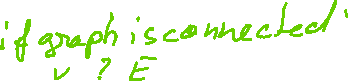 if graph is connected
V ? E